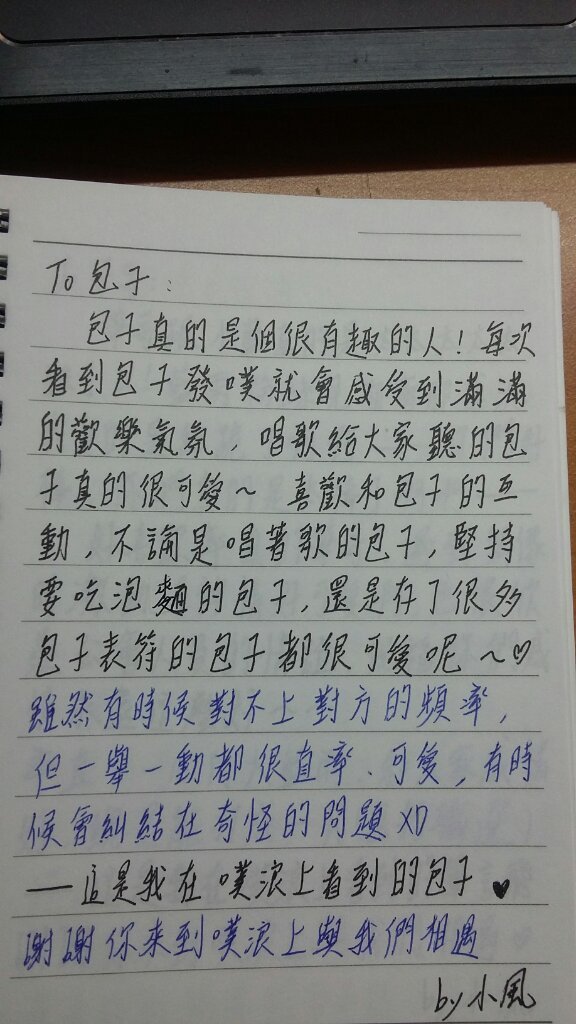 To 包子：
包子真的是個很有趣的人！每次
看到包子發噗就會感受到滿滿
的歡樂氣氛，唱歌給大家聽的包
子真的很可愛～ 喜歡和包子的互
動，不論是唱著歌的包子，堅持
要吃泡麵的包子，還是存了很多
包子表符的包子都很可愛呢～♡
雖然有時候對不上對方的頻率，
但一舉一動都很直率、可愛，有時
候會糾結在奇怪的問題XD
—這是我在噗浪上看到的包子♥
謝謝你來到噗浪上與我們相遇
by小風